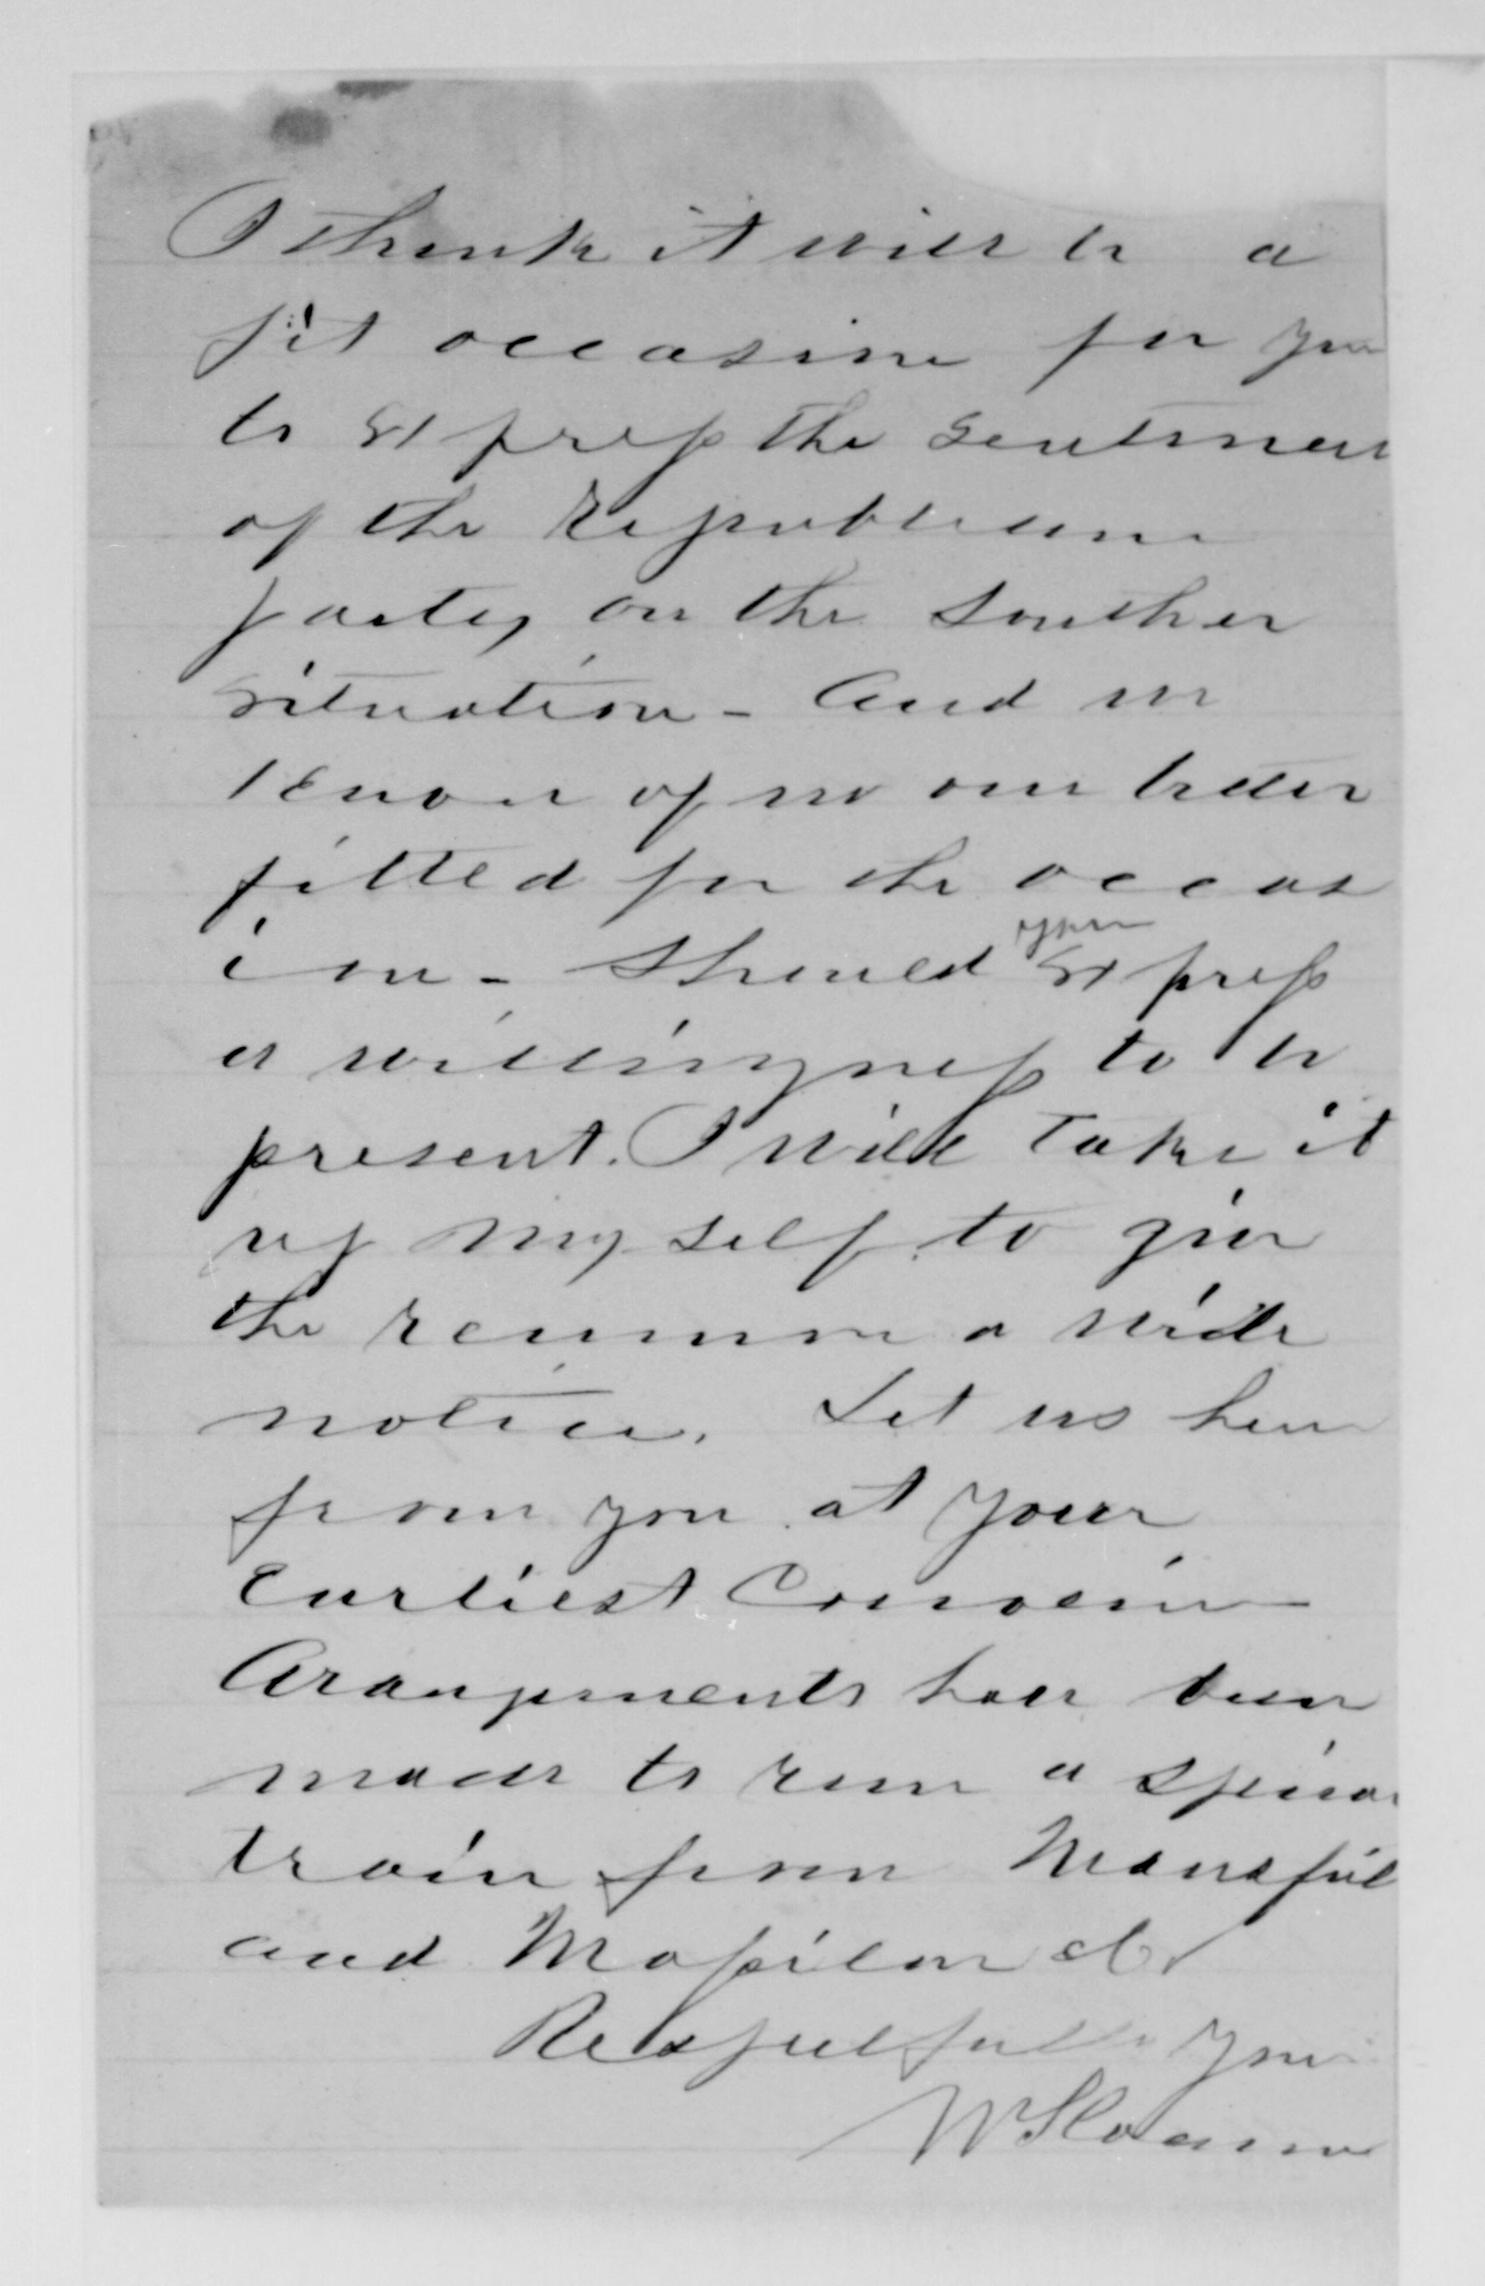 I think it will be a
fit occasion for you
to express the sentimen
of the Republican
party on the Souther
situation - And we
know of no one better
fitted for the occas
ion - Should you express
a willingness to be
present. I will take it
up my self to give
the reunion a wide
notice. Let us hear
from you at your
Earliest Convenien
Arangements have been
made to run a special
train from Mansfiel
and Massilon &c
Respectfully Your
W Sloanne